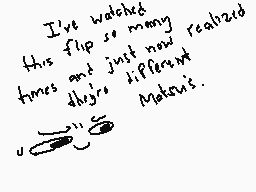 I've watched
this flip so many
times and just now realized
they're different
Matsu's.